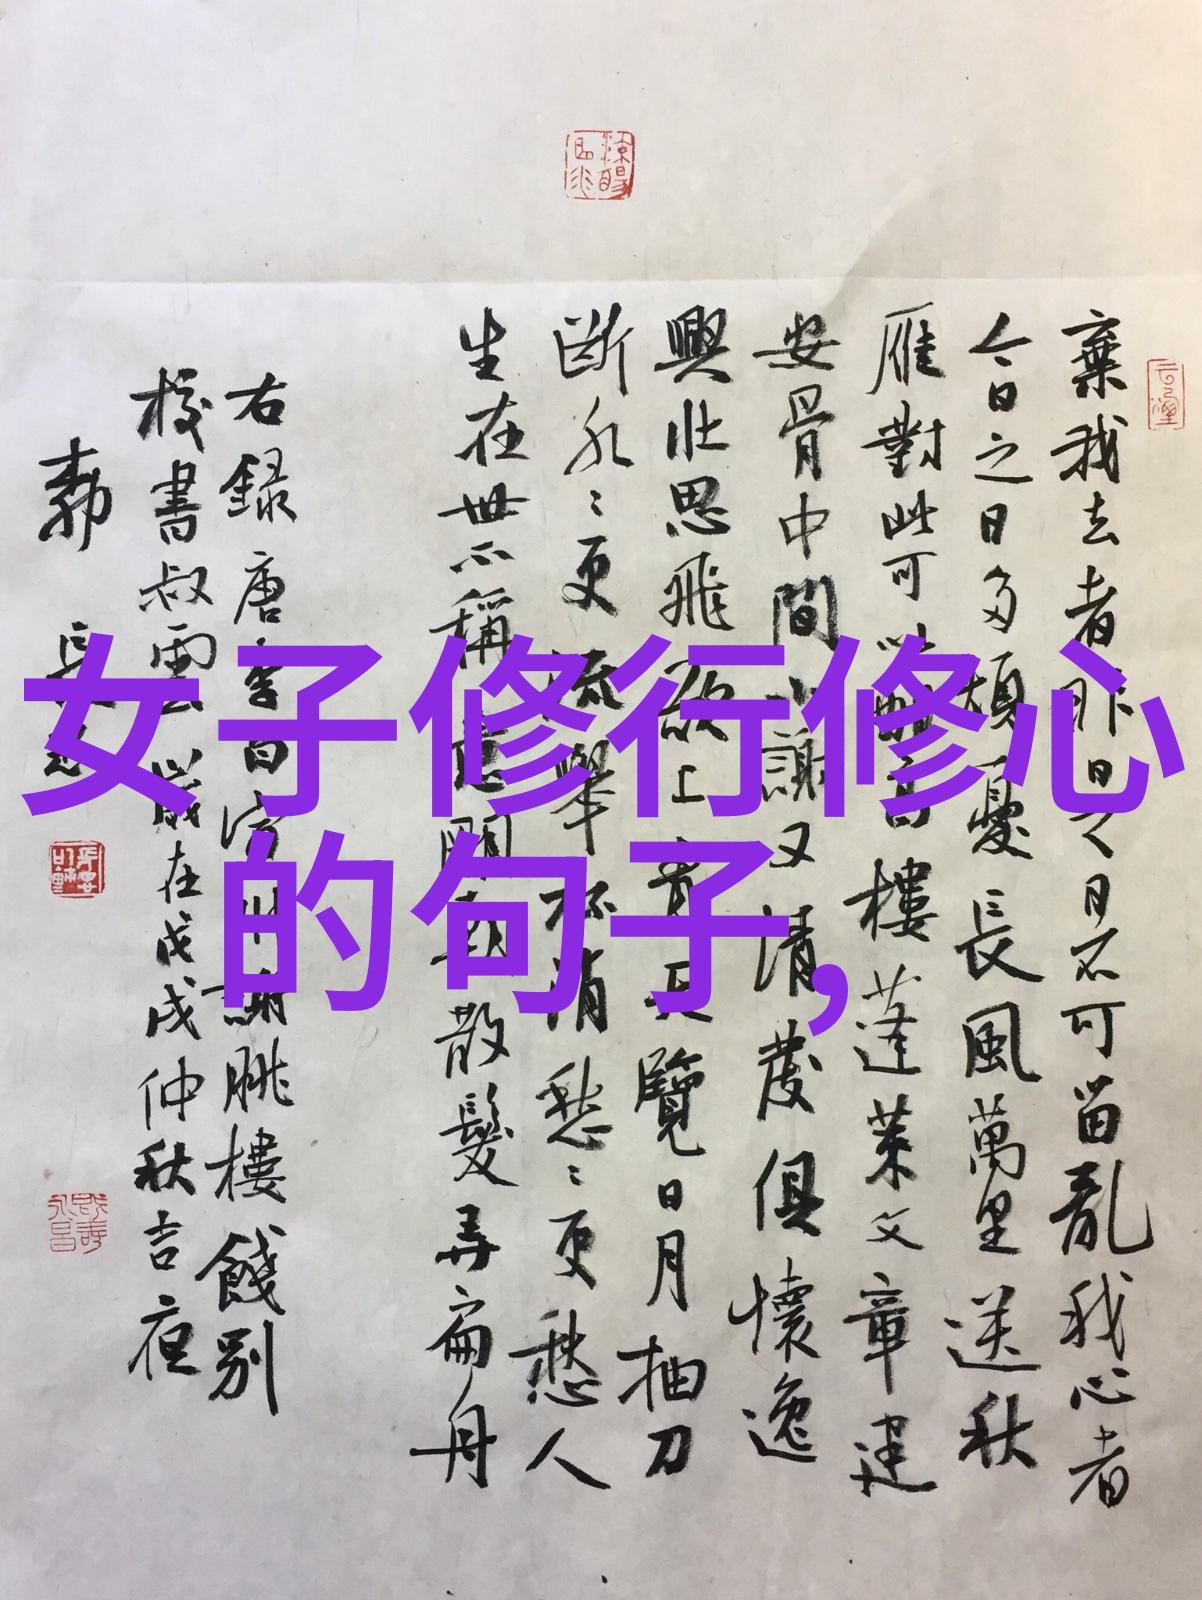 女子修行修心
的句子,
棄我去者昨日之日不可留亂我心者
今日之日多煩憂長風萬里送秋
雁對此可以酣高樓蓬萊文章建
安骨中間小謝又清發俱懷逸
興壯思飛欲上青天覽日月抽刀
斷水〻更流舉杯消愁〻更愁人
生在世不稱意明朝散髮弄扁舟
右錄唐李白宣州謝朓樓餞別
校書叔雲 歲在戊戌仲秋吉夜